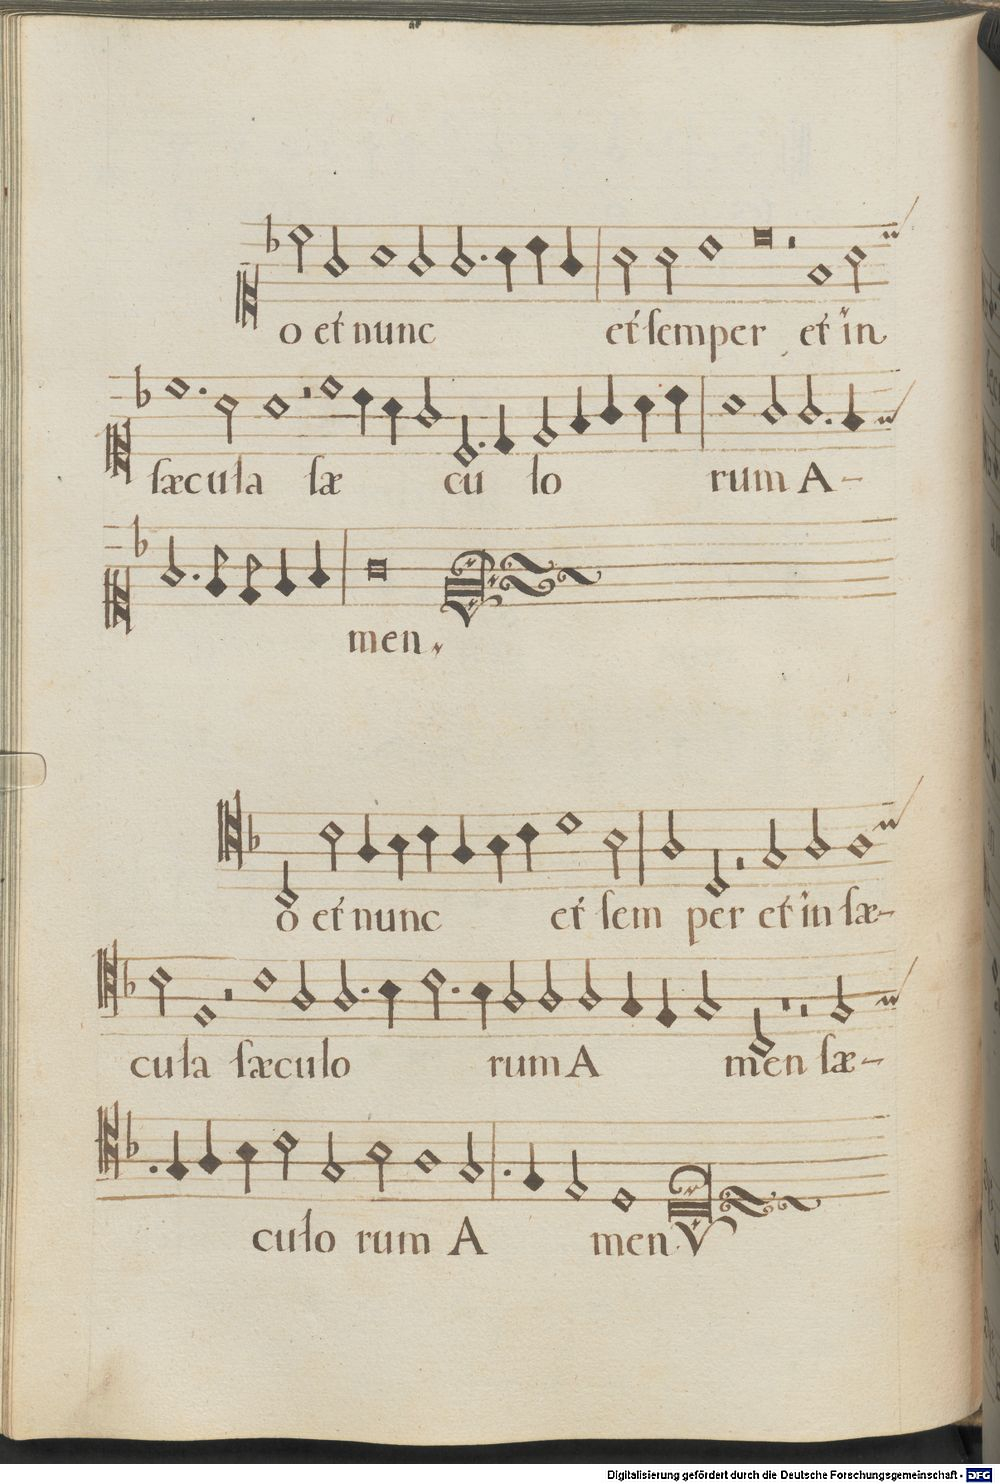 o et nunc et ſemper et in
ſæcula ſæ cu lo rum A-
men
o et nunc et ſem per et in ſæ-
cula ſæculo rum A men ſæ-
culo rum A men
Digitalisierung gefördert durch die Deutsche Forschungsgemeinschaft - DFG